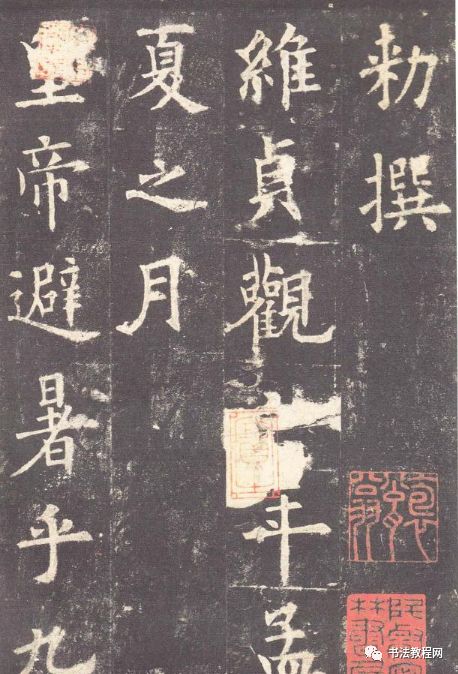 勑撰
維貞觀六年孟
夏之月
皇帝避暑乎九
书法教程网